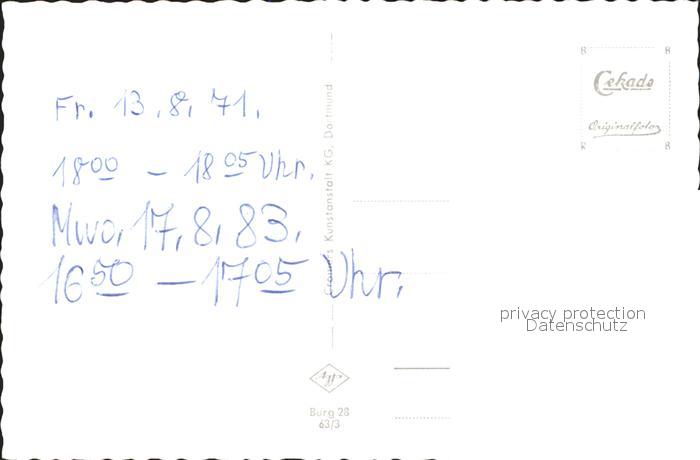 Fr. 13.8.71.
18 00 – 18 05 Uhr.
Mwo, 17.8.83.
16 50 – 17 05 Uhr.
Kunstanstalt KG, Dortmund
Cekade
Originalfoto
privacy protection
Datenschutz
Burg 28
63/3